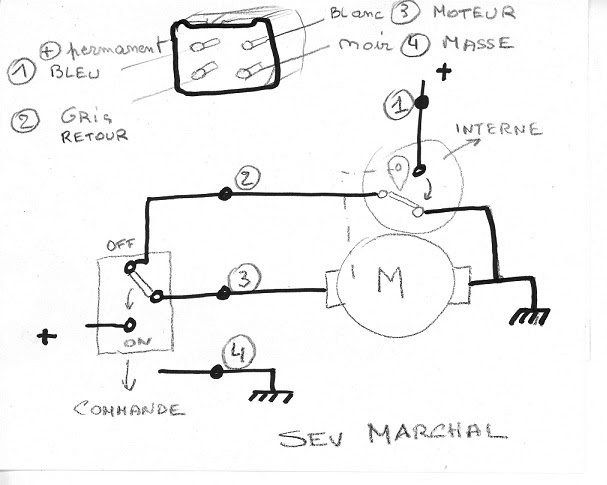 ⊕ permanent
① BLEU
② GRIS
RETOUR
Blanc ③ MOTEUR
noir ④ MASSE
+
①
INTERNE
②
OFF
③
M
+
ON
④
COMMANDE
SEV MARCHAL